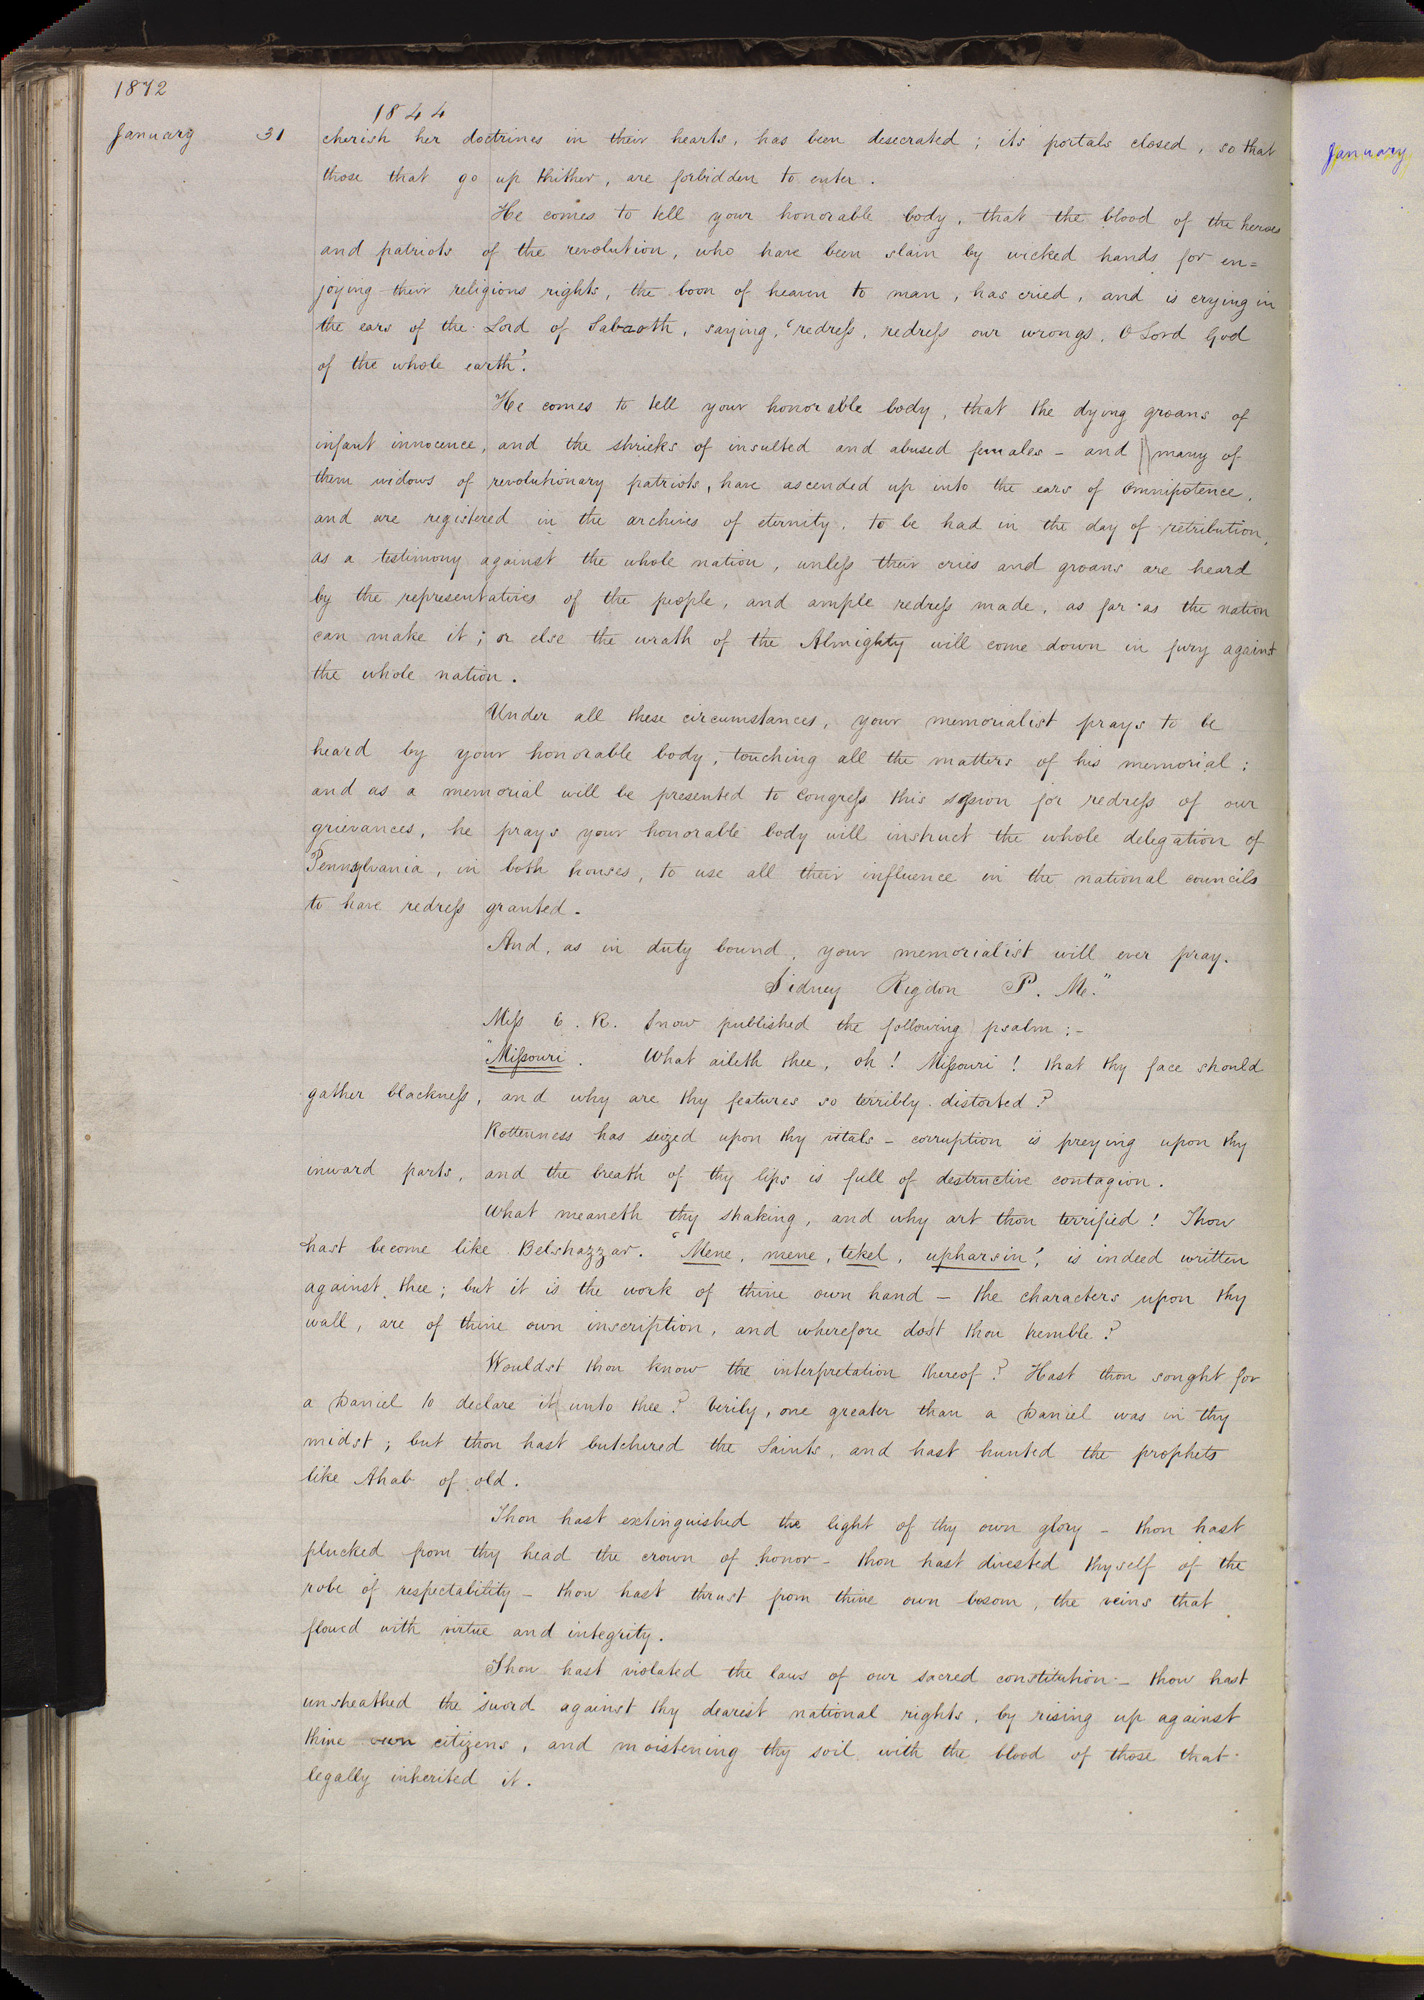 1872
1844
January 31 cherish her doctrines in their hearts, has been desecrated; its portals closed, so that
those that go up thither, are forbidden to enter.
He comes to tell your honorable body, that the blood of the heroes
and patriots of the revolution, who have been slain by wicked hands for en=
joying their religious rights, the boon of heaven to man, has cried, and is crying in
the ears of the Lord of Sabaoth, saying, 'redress, redress our wrongs, O Lord God
of the whole earth'.
He comes to tell your honorable body, that the dying groans of
infant innocence, and the shrieks of insulted and abused females – and many of
them widows of revolutionary patriots, have ascended up into the ears of Omnipotence,
and are registered in the archives of eternity, to be had in the day of retribution,
as a testimony against the whole nation, unless their cries and groans are heard
by the representatives of the people, and ample redress made, as far as the nation
can make it; or else the wrath of the Almighty will come down in fury against
the whole nation.
Under all these circumstances, your memorialist prays to be
heard by your honorable body, touching all the matters of his memorial;
and as a memorial will be presented to Congress this session for redress of our
grievances, he prays your honorable body will instruct the whole delegation of
Pennsylvania, in both houses, to use all their influence in the national councils
to have redress granted.
And, as in duty bound, your memorialist will ever pray.
Sidney Rigdon P. M."
Miss E. R. Snow published the following psalm:–
"Missouri. What aileth thee, oh! Missouri! that thy face should
gather blackness, and why are thy features so terribly distorted?
Rottenness has seized upon thy vitals – corruption is preying upon thy
inward parts, and the breath of thy lips is full of destructive contagion.
What meaneth thy shaking, and why art thou terrified! Thou
hast become like Belshazzar. 'Mene, mene, tekel, upharsin', is indeed written
against thee; but it is the work of thine own hand – the characters upon thy
wall, are of thine own inscription, and wherefore dost thou tremble?
Wouldst thou know the interpretation thereof? Hast thou sought for
a Daniel to declare it unto thee? Verily, one greater than a Daniel was in thy
midst; but thou hast butchered the Saints, and hast hunted the prophets
like Ahab of old.
Thou hast extinguished the light of thy own glory – thou hast
plucked from thy head the crown of honor – thou hast divested thyself of the
robe of respectability – thou hast thrust from thine own bosom, the veins that
flowed with virtue and integrity.
Thou hast violated the laws of our sacred constitution – thou hast
unsheathed the sword against thy dearest national rights, by rising up against
thine own citizens, and moistening thy soil with the blood of those that
legally inherited it.
January